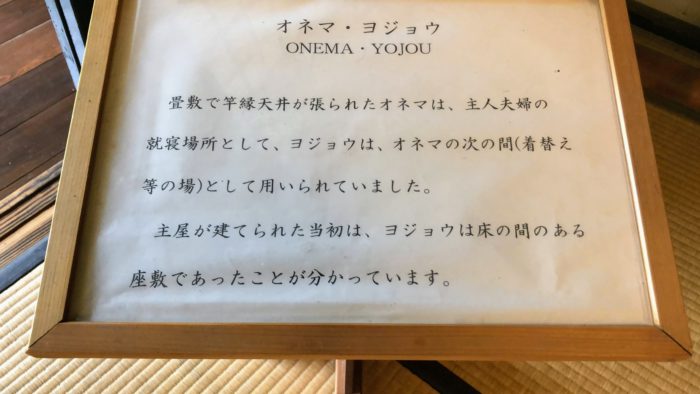 オネマ・ヨジョウ
ONEMA・YOJOU
畳敷で竿縁天井が張られたオネマは、主人夫婦の
就寝場所として、ヨジョウは、オネマの次の間(着替え
等の場)として用いられていました。
主屋が建てられた当初は、ヨジョウは床の間のある
座敷であったことが分かっています。